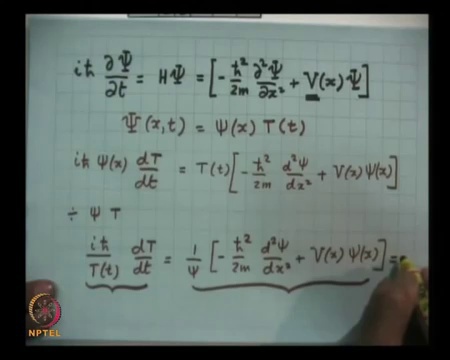 iħ ∂Ψ/∂t = HΨ = [-ħ²/2m ∂²Ψ/∂x² + V(x)Ψ]
Ψ(x,t) = ψ(x) T(t)
iħ ψ(x) dT/dt = T(t)[-ħ²/2m d²ψ/dx² + V(x)ψ(x)]
÷ ψ T
iħ/T(t) dT/dt = 1/ψ [-ħ²/2m d²ψ/dx² + V(x)ψ(x)] =
NPTEL